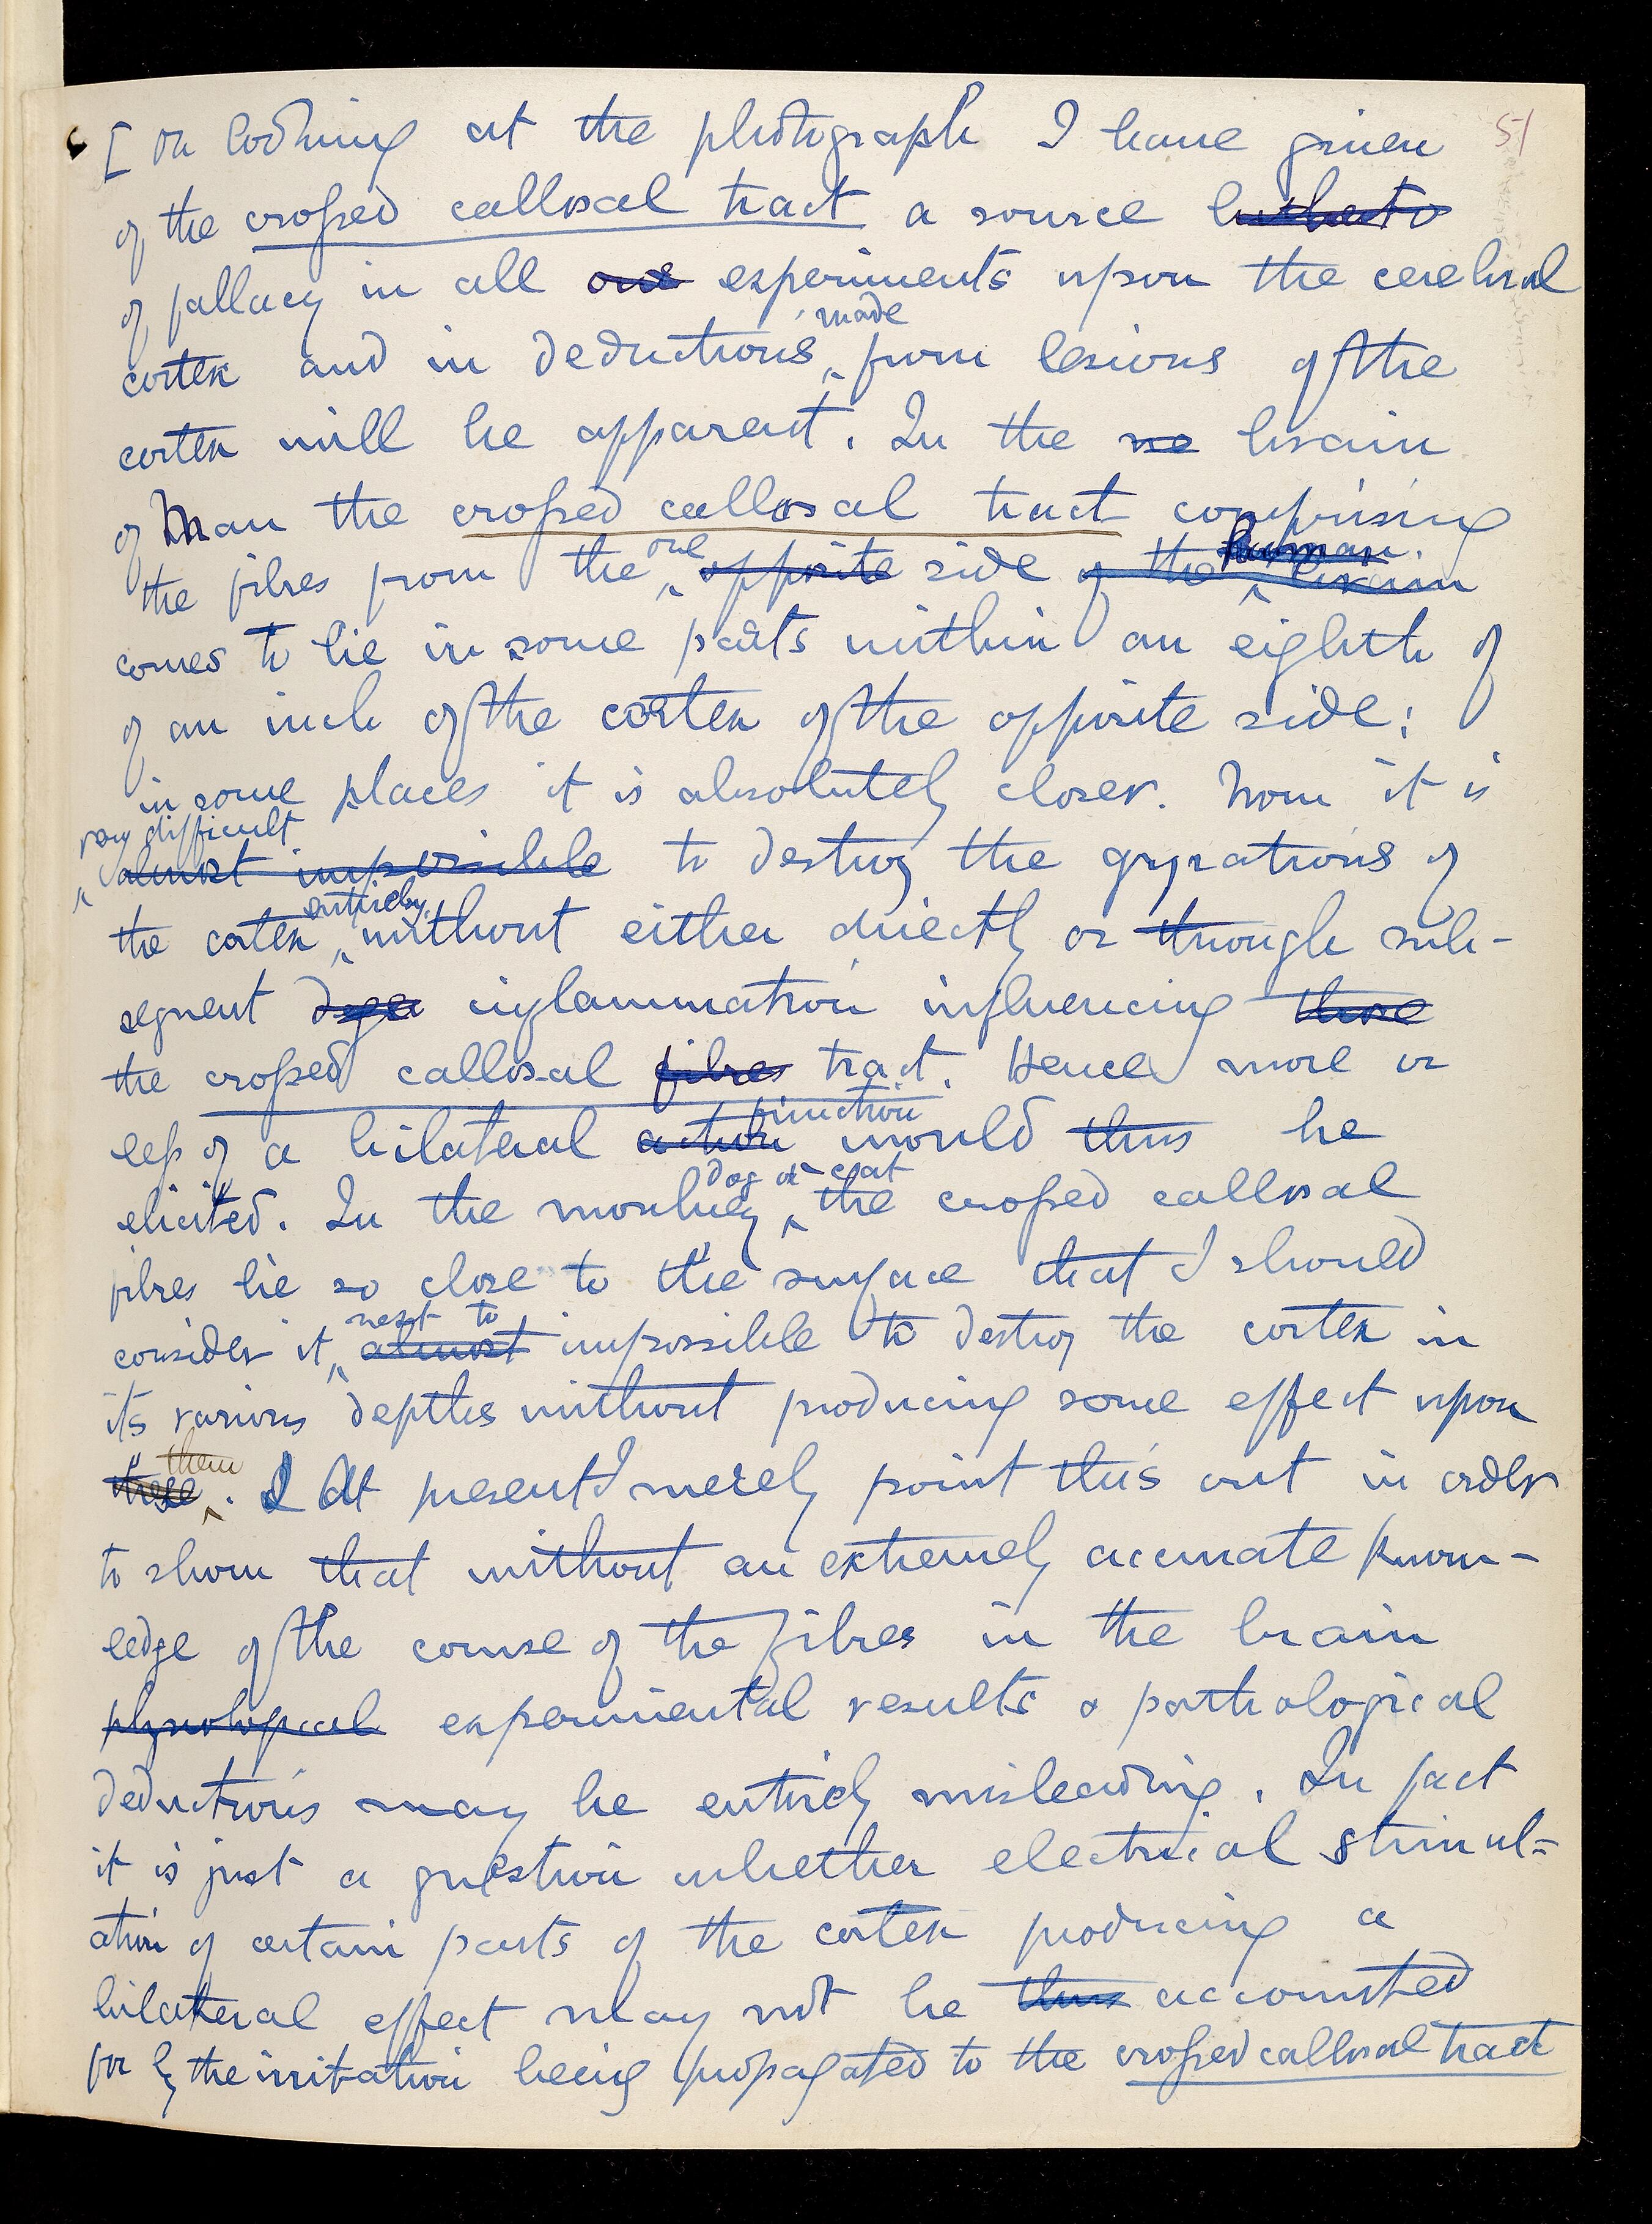 51
[ On looking at the photograph I have given
of the crossed callosal tract a source hitherto
of fallacy in all our experiments upon the cerebral
made
cortex and in deductions ‸ from lesions of the
cortex will be apparent. In the brain
of Man the crossed callosal tract comprising
one human
the fibres from the ‸ opposite side of the ‸ brain
comes to lie in some parts within an eighth of
of an inch of the cortex of the opposite side;
in some places it is absolutely closer. Now it is
very difficult
‸ almost impossible to destroy the gyrations of
entirely
the cortex ‸ without either directly or through sub-
sequent dege inflammation influencing those
the crossed callosal fibres tract. Hence more or
function
less of a bilateral action would thus be
dog or cat
elicited. In the monkey ‸ the crossed callosal
fibres lie so close to the surface that I should
next to
consider it ‸ almost impossible to destroy the cortex in
its various depths without producing some effect upon
them
these ‸. I At present I merely point this out in order
to show that without an extremely accurate know-
ledge of the course of the fibres in the brain
physiological experimental results & pathological
deductions may be entirely misleading. In fact
it is just a question whether electrical stimul=
ation of certain parts of the cortex producing a
bilateral effect may not be thus accounted
for by the irritation being propagated to the crossed callosal tract